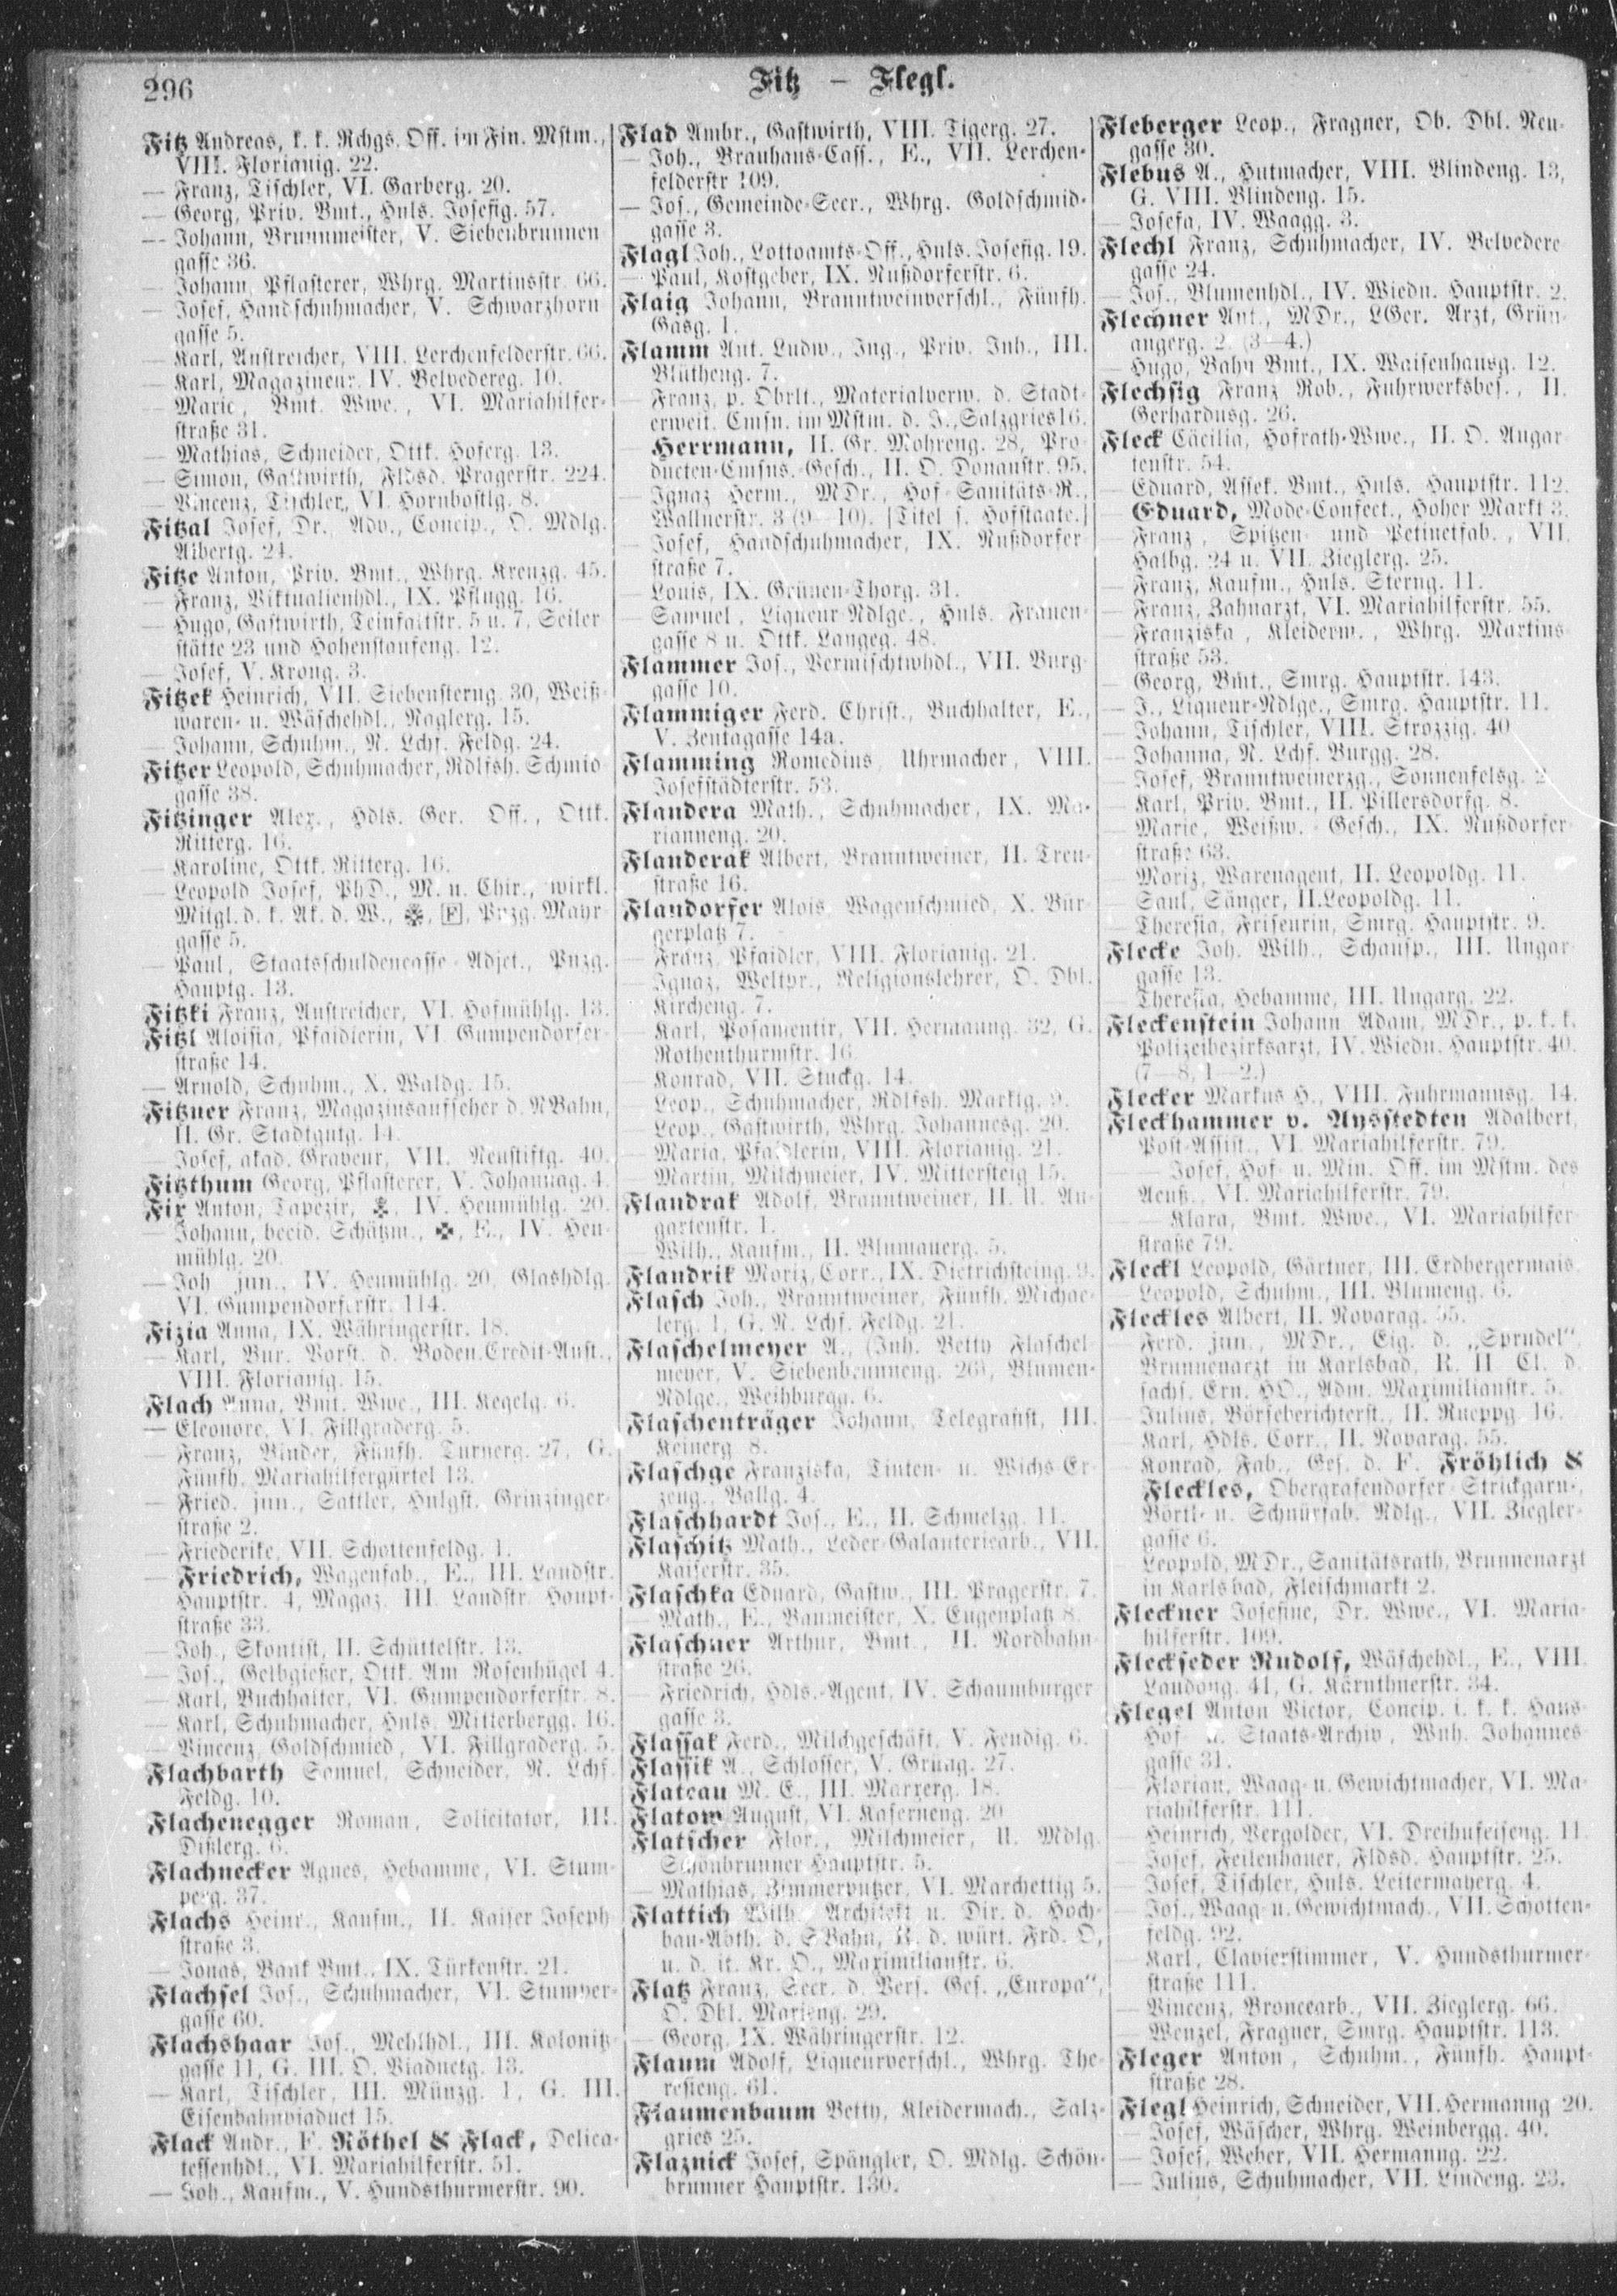 296
Fitz — Flegl.
Fitz Andreas, k. k. Rchgs. Off. im Fin. Mstm.,
VIII. Florianig. 22.
— Franz, Tischler, VI. Garberg. 20.
— Georg, Priv. Bmt., Huls. Josefig. 57.
— Johann, Brunnmeister, V. Siebenbrunnen
gasse 36.
— Johann, Pflasterer, Whrg. Martinsstr. 66.
— Josef, Handschuhmacher, V. Schwarzhorn
gasse 5.
— Karl, Anstreicher, VIII. Lerchenfelderstr. 66.
— Karl, Magazineur, IV. Belvedereg. 10.
— Marie, Bmt. Wwe., VI. Mariahilfer-
straße 31.
— Mathias, Schneider, Ottk. Hoferg. 13.
— Simon, Gastwirth, Fldsd. Pragerstr. 224.
— Vincenz, Tischler, VI. Hornbostlg. 8.
Fitzal Josef, Dr., Adv., Concip., O. Mdlg.
Albertg. 24.
Fitze Anton, Priv. Bmt., Whrg. Kreuzg. 45.
— Franz, Viktualienhdl., IX. Pflugg. 16.
— Hugo, Gastwirth, Teinfaltstr. 5 u. 7, Seiler
stätte 23 und Hohenstaufeng. 12.
— Josef, V. Krong. 3.
Fitzek Heinrich, VII. Siebensterng. 30, Weiß-
waren- u. Wäschehdl., Naglerg. 15.
— Johann, Schuhm., N. Lchf. Feldg. 24.
Fitzer Leopold, Schuhmacher, Rdlfsh. Schmid
gasse 38.
Fitzinger Alex., Hdls. Ger. Off., Ottk.
Ritterg. 16.
— Karoline, Ottk. Ritterg. 16.
— Leopold Josef, PhD., M. u. Chir., wirkl.
Mitgl. d. k. Ak. d. W., F, Pnzg. Mayr-
gasse 5.
— Paul, Staatsschuldencasse-Adjct., Pnzg.
Hauptg. 13.
Fitzki Franz, Anstreicher, VI. Hofmühlg. 13.
Fitzl Aloisia, Pfaidlerin, VI. Gumpendorfer-
straße 14.
— Arnold, Schuhm., X. Waldg. 15.
Fitzner Franz, Magazinsaufseher d. NBahn,
II. Gr. Stadtgutg. 14.
— Josef, akad. Graveur, VII. Neustiftg. 40.
Fitzthum Georg, Pflasterer, V. Johannag. 4.
Fix Anton, Tapezir, IV. Heumühlg. 20.
— Johann, beeid. Schätzm., E., IV. Heu-
mühlg. 20.
— Joh. jun., IV. Heumühlg. 20, Glashdlg.
VI. Gumpendorferstr. 114.
Fizia Anna, IX. Währingerstr. 18.
— Karl, Bur. Vorst. d. Boden.Credit-Anst.,
VIII. Florianig. 15.
Flach Anna, Bmt. Wwe., III. Kegelg. 6.
— Eleonore, VI. Fillgraderg. 5.
— Franz, Binder, Fünfh. Turnerg. 27, G.
Fünfh. Mariahilfergürtel 13.
— Fried. jun., Sattler, Hulgst. Grinzinger-
straße 2.
— Friederike, VII. Schottenfeldg. 1.
— Friedrich, Wagenfab., E., III. Landstr.
Hauptstr. 4, Magaz. III. Landstr. Haupt-
straße 33.
— Joh., Skontist, II. Schüttelstr. 13.
— Jos., Gelbgießer, Ottk. Am Rosenhügel 4.
— Karl, Buchhalter, VI. Gumpendorferstr. 8.
— Karl, Schuhmacher, Huls. Mitterbergg. 16.
— Vincenz, Goldschmied, VI. Fillgraderg. 5.
Flachbarth Samuel, Schneider, N. Lchf.
Feldg. 10.
Flachenegger Roman, Solicitator, III.
Dißlerg. 6.
Flachnecker Agnes, Hebamme, VI. Stum-
perg. 37.
Flachs Heinr., Kaufm., II. Kaiser Joseph
straße 3.
— Jonas, Bank Bmt., IX. Türkenstr. 21.
Flachsel Jos., Schuhmacher, VI. Stumper-
gasse 60.
Flachshaar Jos., Mehlhdl., III. Kolonitz
gasse 11, G. III. O. Viaductg. 13.
— Karl, Tischler, III. Münzg. 1, G. III.
Eisenbahnviaduct 15.
Flack Andr., F. Röthel & Flack, Delica-
tessenhdl., VI. Mariahilferstr. 51.
— Joh., Kaufm., V. Hundsthurmerstr. 90.
Flad Ambr., Gastwirth, VIII. Tigerg. 27.
— Joh., Brauhaus-Cass., E., VII. Lerchen-
felderstr 109.
— Jos., Gemeinde-Secr., Whrg. Goldschmid-
gasse 3.
Flagl Joh., Lottoamts-Off., Huls. Josefig. 19.
— Paul, Kostgeber, IX. Nußdorferstr. 6.
Flaig Johann, Branntweinverschl., Fünfh.
Gasg. 1.
Flamm Ant. Ludw., Ing., Priv. Inh., III.
Blütheng. 7.
— Franz, p. Obrlt., Materialverw. d. Stadt-
erweit. Cmsn. im Mstm. d. J., Salzgries 16.
— Herrmann, II. Gr. Mohreng. 28, Pro-
ducten-Cmsns.-Gesch., II. O. Donaustr. 95.
— Ignaz Herm., MDr., Hof-Sanitäts-R.,
Wallnerstr. 3 (9—10). [Titel s. Hofstaate.]
— Josef, Handschuhmacher, IX. Nußdorfer
straße 7.
— Louis, IX. Grünen-Thorg. 31.
— Samuel, Liqueur-Ndlge., Huls. Frauen-
gasse 8 u. Ottk. Langeg. 48.
Flammer Jos., Vermischtwhdl., VII. Burg
gasse 10.
Flammiger Ferd. Christ., Buchhalter, E.,
V. Zentagasse 14a.
Flamming Romedius, Uhrmacher, VIII.
Josefstädterstr. 53.
Flandera Math., Schuhmacher, IX. Ma-
rianneng. 20.
Flanderak Albert, Branntweiner, II. Treu-
straße 16.
Flandorfer Alois, Wagenschmied, X. Bür
gerplatz 7.
— Franz, Pfaidler, VIII. Florianig. 21.
— Ignaz, Weltpr., Religionslehrer, O. Dbl.
Kircheng. 7.
— Karl, Posamentir, VII. Hermanng. 32, G.
Rothenthurmstr. 16
— Konrad, VII. Stuckg. 14.
— Leop., Schuhmacher, Rdlfsh. Marktg. 9.
— Leop., Gastwirth, Whrg. Johannesg. 20.
— Maria, Pfaidlerin, VIII. Florianig. 21.
— Martin, Milchmeier, IV. Mittersteig 15.
Flandrak Adolf, Branntweiner, II. U. Au-
gartenstr. 1.
— Wilh., Kaufm., II. Blumauerg. 5.
Flandrik Moriz, Corr., IX. Dietrichsteing. 9.
Flasch Joh., Branntweiner, Fünfh. Michae-
lerg. 1, G. N. Lchf. Feldg. 21.
Flaschelmeyer A., (Inh. Betty Flaschel-
meyer, V. Siebenbrunneng. 26), Blumen-
Ndlge., Weihburgg. 6.
Flaschenträger Johann, Telegrafist, III.
Keinerg 8.
Flaschge Franziska, Tinten- u. Wichs-Er-
zeug., Ballg. 4.
Flaschhardt Jos., E., II. Schmelzg. 11.
Flaschitz Math., Leder-Galanteriearb., VII.
Kaiserstr. 35.
Flaschka Eduard, Gastw., III. Pragerstr. 7.
— Math., E., Baumeister, X. Eugenplatz 8.
Flaschner Arthur, Bmt., II. Nordbahn
straße 26.
— Friedrich, Hdls.-Agent, IV. Schaumburger
gasse 3.
Flassak Ferd., Milchgeschäft, V. Fendig. 6.
Flassik A., Schlosser, V. Grüag. 27.
Flateau M. E., III. Marxerg. 18.
Flatow August, VI. Kaserneng. 20
Flatscher Flor., Milchmeier, U. Mdlg.
Schönbrunner Hauptstr. 5.
— Mathias, Zimmerputzer, VI. Marchettig 5.
Flattich Wilh. Architekt u. Dir. d. Hoch-
bau-Abth. d. SBahn, R. d. würt. Frd. O.,
u. d. it. Kr. O., Maximilianstr. 6.
Flatz Franz, Secr. d. Vers. Ges. „Europa",
O. Dbl. Marieng. 29.
— Georg, IX. Währingerstr. 12.
Flaum Adolf, Liqueurverschl., Whrg. The-
resieng. 61.
Flaumenbaum Betty, Kleidermach., Salz-
gries 25.
Flaznick Josef, Spängler, O. Mdlg. Schön-
brunner Hauptstr. 130.
Fleberger Leop., Fragner, Ob. Dbl. Neu-
gasse 30.
Flebus A., Hutmacher, VIII. Blindeng. 13,
G. VIII. Blindeng. 15.
— Josefa, IV. Waagg. 3.
Flechl Franz, Schuhmacher, IV. Belvedere
gasse 24.
— Jos., Blumenhdl., IV. Wiedn. Hauptstr. 2.
Flechner Ant., MDr., LGer. Arzt, Grün-
angerg. 2. (3—4.)
— Hugo, Bahn Bmt., IX. Waisenhausg. 12.
Flechsig Franz Rob., Fuhrwerksbes., II.
Gerhardusg. 26.
Fleck Cäcilia, Hofrath-Wwe., II. O. Augar
tenstr. 54.
— Eduard, Assek. Bmt., Huls. Hauptstr. 112.
— Eduard, Mode-Confect., Hoher Markt 3.
— Franz, Spitzen- und Petinetfab., VII.
Halbg. 24 u. VII. Zieglerg. 25.
— Franz, Kaufm., Huls. Sterng. 11.
— Franz, Zahnarzt, VI. Mariahilferstr. 55.
— Franziska, Kleiderm., Whrg. Martins
straße 53.
— Georg, Bmt., Smrg. Hauptstr. 143.
— J., Liqueur-Ndlge., Smrg. Hauptstr. 11.
— Johann, Tischler, VIII. Strozzig. 40
— Johanna, N. Lchf. Burgg. 28.
— Josef, Branntweinerzg., Sonnenfelsg. 2
— Karl, Priv. Bmt., II. Pillersdorfg. 8.
— Marie, Weißw.-Gesch., IX. Nußdorfer
straße 63.
— Moriz, Warenagent, II. Leopoldg. 11.
— Saul, Sänger, II. Leopoldg. 11.
— Theresia, Friseurin, Smrg. Hauptstr. 9.
Flecke Joh. Wilh., Schausp., III. Ungar
gasse 13.
— Theresia, Hebamme, III. Ungarg. 22.
Fleckenstein Johann Adam, MDr., p. k. k.
Polizeibezirksarzt, IV. Wiedn. Hauptstr. 40.
(7—8, 1—2.)
Flecker Markus H., VIII. Fuhrmannsg. 14.
Fleckhammer v. Aysstedten Adalbert,
Post-Assist., VI. Mariahilferstr. 79.
— Josef, Hof- u. Min. Off. im Mstm. des
Aeuß., VI. Mariahilferstr. 79.
— Klara, Bmt. Wwe., VI. Mariahilfer
straße 79.
Fleckl Leopold, Gärtner, III. Erdbergermais.
— Leopold, Schuhm., III. Blumeng. 6.
Fleckles Albert, II. Novarag. 55.
— Ferd. jun., MDr., Eig. d. „Sprudel",
Brunnenarzt in Karlsbad, R. II. Cl. d.
sachs. Ern. HO., Adm. Maximilianstr. 5.
— Julius, Börseberichterst., II. Rueppg. 16.
— Karl, Hdls. Corr., II. Novarag. 55.
— Konrad, Fab., Ges. d. F. Fröhlich &
Fleckles, Obergrafendorfer Strickgarn-,
Börtl- u. Schnürfab. Ndlg., VII. Ziegler-
gasse 6.
— Leopold, MDr., Sanitätsrath, Brunnenarzt
in Karlsbad, Fleischmarkt 2.
Fleckner Josefine, Dr. Wwe., VI. Maria-
hilferstr. 109.
Fleckseder Rudolf, Wäschehdl., E., VIII.
Laudong. 41, G. Kärnthnerstr. 34.
Flegel Anton Victor, Concip. i. k. k. Haus-
Hof- u. Staats-Archiv, Wnh. Johannes
gasse 31.
— Florian, Waag- u. Gewichtmacher, VI. Ma-
riahilferstr. 111.
— Heinrich, Vergolder, VI. Dreihufeiseng. 11.
— Josef, Feilenhauer, Fldsd. Hauptstr. 25.
— Josef, Tischler, Huls. Leitermayerg. 4.
— Jos., Waag- u. Gewichtmach., VII. Schotten-
feldg. 92.
— Karl, Clavierstimmer, V. Hundsthurmer-
straße 111.
— Vincenz, Broncearb., VII. Zieglerg. 66.
— Wenzel, Fragner, Smrg. Hauptstr. 113.
Fleger Anton, Schuhm., Fünfh. Haupt-
straße 28.
Flegl Heinrich, Schneider, VII. Hermanng 20.
— Josef, Wäscher, Whrg. Weinbergg. 40.
— Josef, Weber, VII. Hermanng. 22.
— Julius, Schuhmacher, VII. Lindeng. 23.